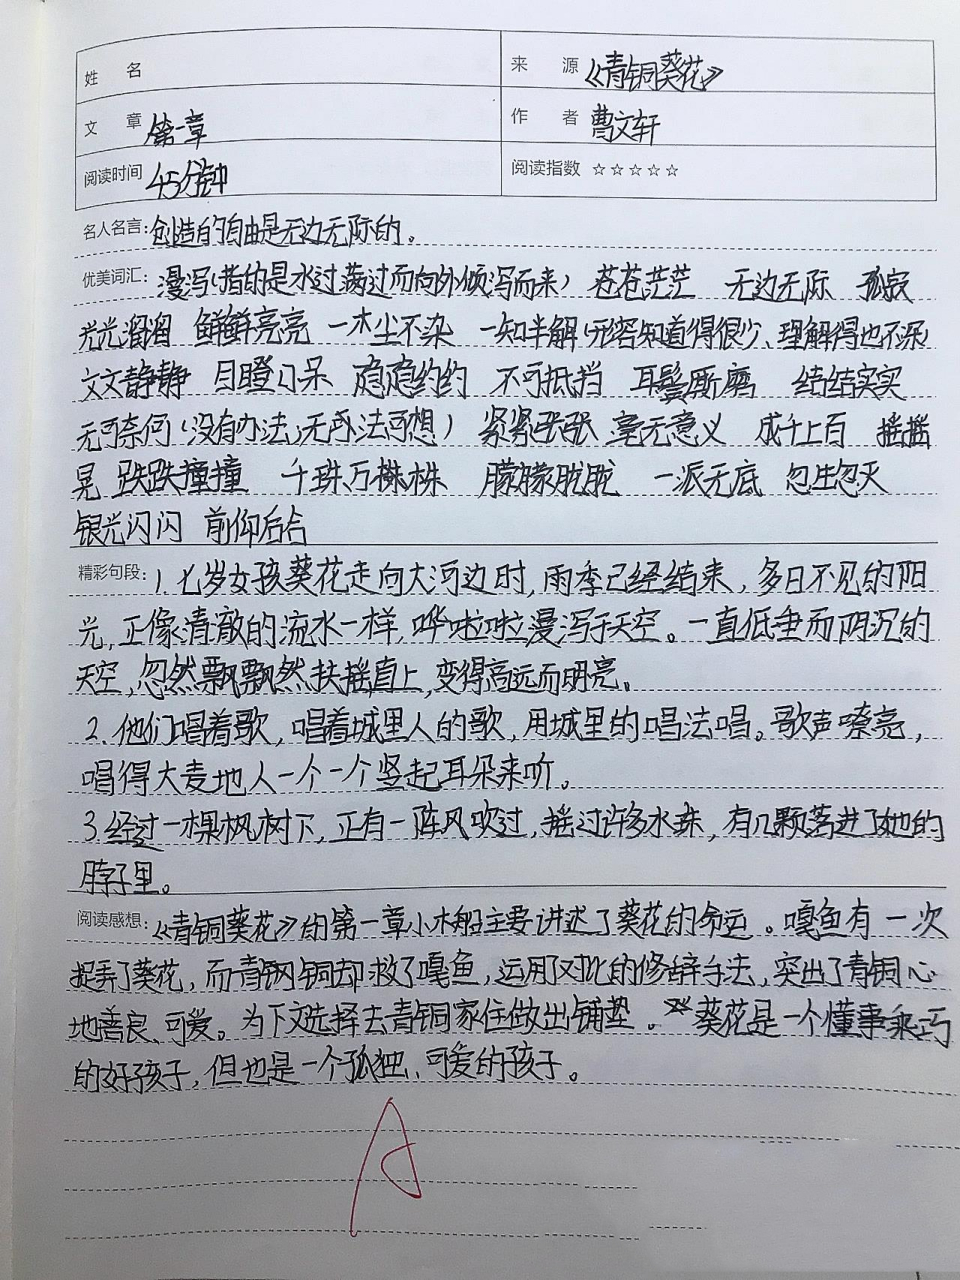 姓 名 来 源 《青铜葵花》
文 章 第一章 作 者 曹文轩
阅读时间 45分钟 阅读指数 ☆☆☆☆☆
名人名言: 创造的自由是无边无际的。
优美词汇: 漫泻(指的是水过满过而向外倾泻而来) 苍苍茫茫 无边无际 孤寂
光光溜溜 鲜鲜亮亮 一木尘不染 一知半解(形容知道得很少、理解得也不深)
文文静静 目瞪口呆 隐隐约约 不可抵挡 耳鬓厮磨 结结实实
无可奈何(没有办法,无法可想) 紧紧张张 毫无意义 成千上百 摇摇
晃 跌跌撞撞 千珠万株株 朦朦胧胧 一派无底 忽生忽灭
银光闪闪 前仰后合
精彩句段: 1. 七岁女孩葵花走向大河边时,雨季已经结束,多日不见的阳
光,正像清澈的流水一样,哗啦啦漫泻于天空。一直低垂而阴沉的
天空,忽然飘飘然扶摇直上,变得高远而明亮。
2. 他们唱着歌,唱着城里人的歌,用城里的唱法唱。歌声嘹亮,
唱得大麦地人一个一个竖起耳朵来听。
3. 经过一棵枫树下,正有一阵风吹过,摇过许多水珠,有几颗落进了她的
脖子里。
阅读感想: 《青铜葵花》的第一章小木船主要讲述了葵花的命运。嘎鱼有一次
捉弄了葵花,而青铜却救了嘎鱼,运用了对比的修辞手法,突出了青铜心
地善良、可爱。为下文选择去青铜家住做出铺垫。葵花是一个懂事乖巧
的好孩子,但也是一个孤独、可爱的孩子。
A